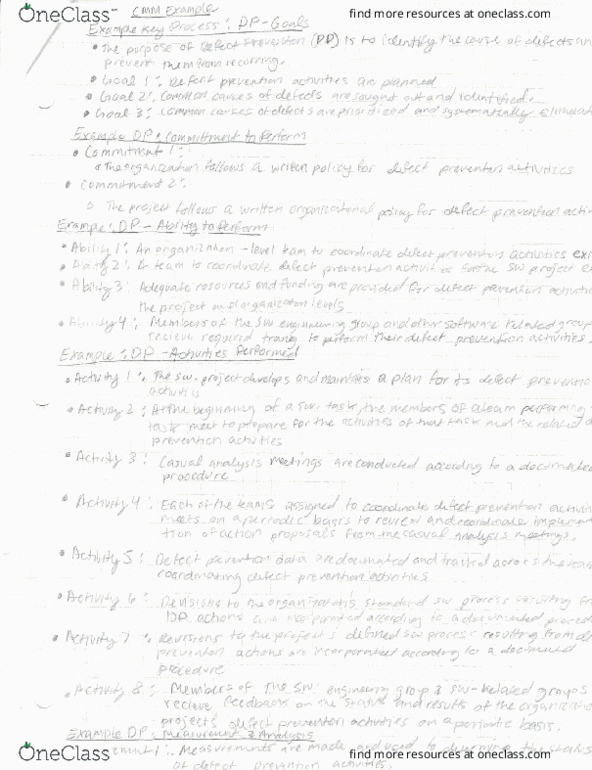 OneClass
find more resources at oneclass.com
CMM Example
Example Key Process: DP-Goals
• The purpose of Defect Prevention (DP) is to identify the cause of defects an
prevent them from recurring.
• Goal 1: Defect prevention activities are planned
• Goal 2: Common causes of defects are saught out and identified.
• Goal 3: common causes of defects are prioritized and systematically eliminate
Example DP: Committment to Perform
• Commitment 1:
o The organization follows a written policy for defect prevention activities
• Commitment 2:
o The project follows a written organizational policy for defect prevention activi
Example: DP - Ability to Perform
• Ability 1: An organization-level team to coordinate defect prevention activities exi
• Ability 2: A team to coordinate defect prevention activities for the sw project e
• Ability 3: Adequate resources and funding are provided for defect prevention activitie
the project and organization levels
• Ability 4: Members of the sw engineering group and other software related group
recieve required to perform their defect prevention activities.
Example: DP - Activities Performed
• Activity 1: The sw. project develops and maintains a plan for its defect preventio
activities
• Activity 2: At the beginning of a sw. task, the members of a team performing
task meet to prepare for the activities of that task and the related d
prevention activities
• Activity 3: Casual analysis meetings are conducted according to a documented
procedure
• Activity 4: Each of the teams assigned to coordinate defect prevention activiti
meets on a periodic basis to review and coordinate implementa
tion of action proposals from the casual analysis meetings.
• Activity 5: Defect prevention data are documented and tracked across the team
coordinating defect prevention activities
• Activity 6: Revisions to the organization's standard sw process resulting fr
DP actions are incorporated according to a documented proced
• Activity 7: Revisions to the project's defined sw process resulting from de
prevention actions are incorporated according to a documented
procedure
• Activity 8: Members of the sw. engineering group & sw-related groups
recieve feedback on the status and results of the organizatio
project's defect prevention activities on a periodic basis.
Example DP: Measurement & Analysis
ement 1: Measurements are made and used to determine the status
of defect prevention activities.
OneClass
find more resources at oneclass.com